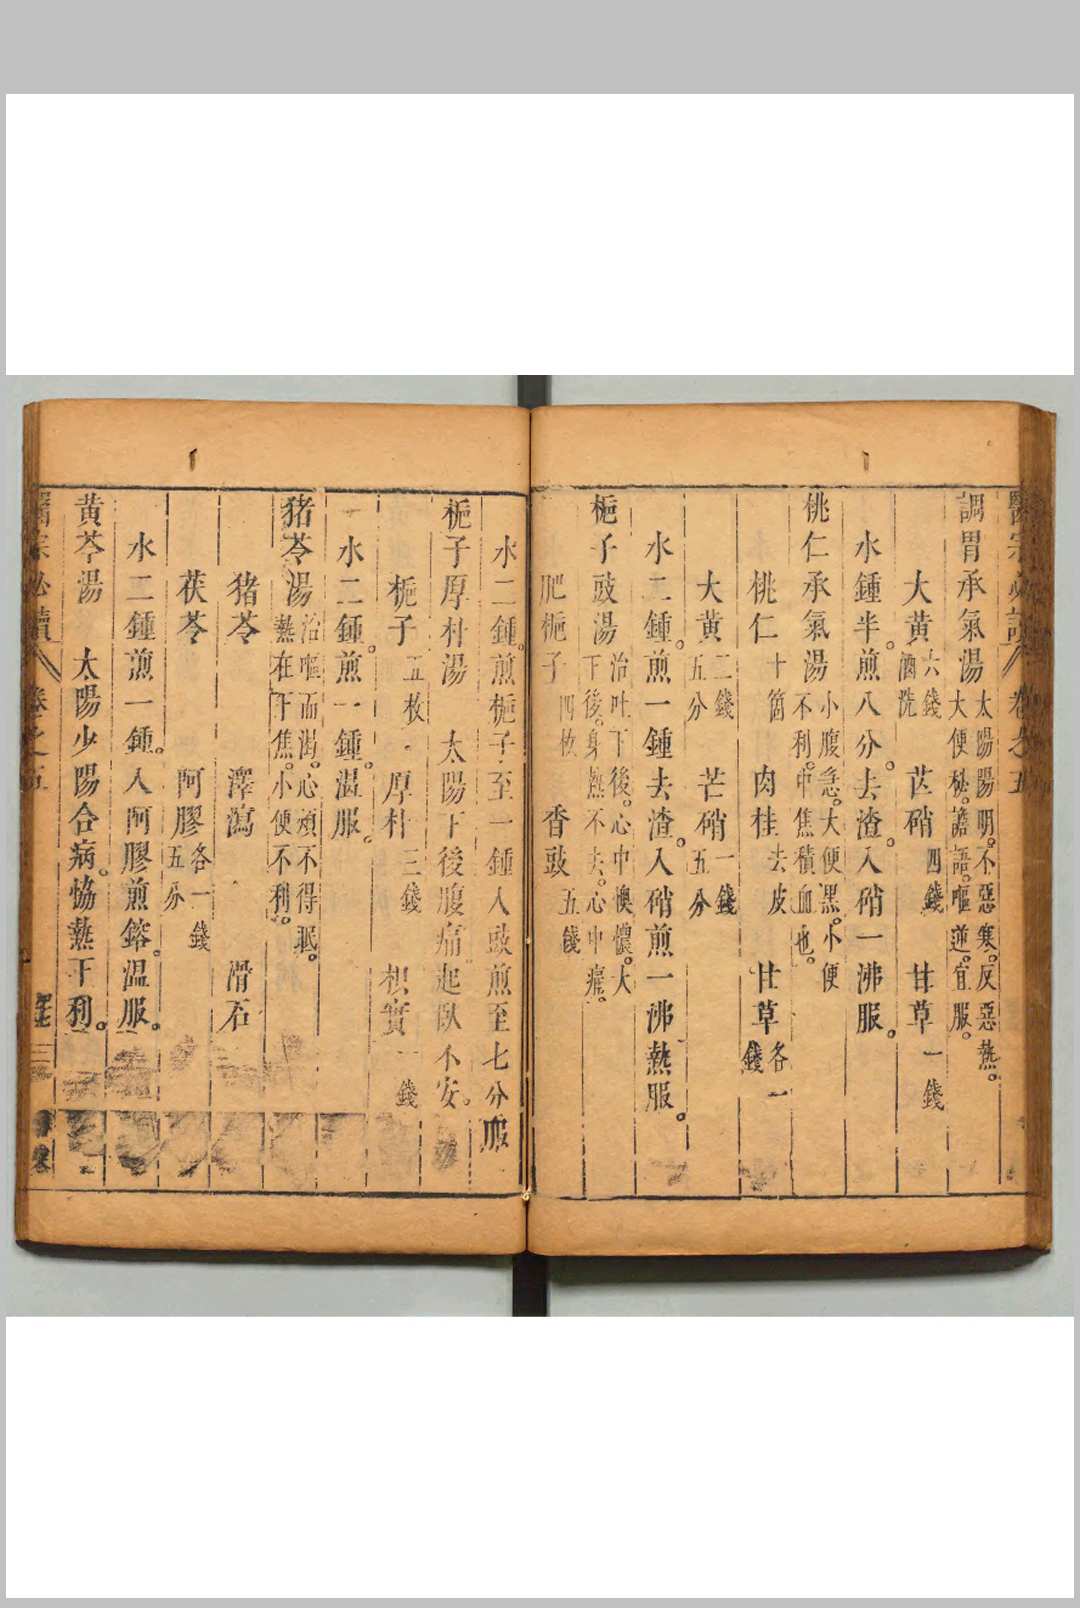 醫宗必讀 卷之五
調胃承氣湯 太陽陽明。不惡寒。反惡熱。大便秘。譫語。嘔逆。宜服。
大黃 六錢酒洗 芒硝 四錢 甘草 一錢
水鍾半。煎八分。去渣。入硝一沸服。
桃仁承氣湯 小腹急。大便黑。小便不利。中焦積血也。
桃仁 十箇 肉桂 去皮 甘草 各一錢
大黃 二錢五分 芒硝 一錢五分
水二鍾。煎一鍾去渣。入硝煎一沸熱服。
梔子豉湯 治吐下後。心中懊憹。大下後。身熱不去。心中痛。
肥梔子 四枚 香豉 五錢
水二鍾。煎梔子至一鍾入豉煎至七分服
梔子厚朴湯 太陽下後腹痛起臥不安。
梔子 五枚 厚朴 三錢 枳實 一錢
水二鍾。煎一鍾。溫服。
猪苓湯 治嘔而渴。心煩不得眠。熱在下焦。小便不利。
猪苓 澤瀉 滑石
茯苓 阿膠 各一錢五分
水二鍾煎一鍾。入阿膠煎鎔。溫服。
黃芩湯 太陽少陽合病。恊熱下利。
醫宗必讀 卷之五